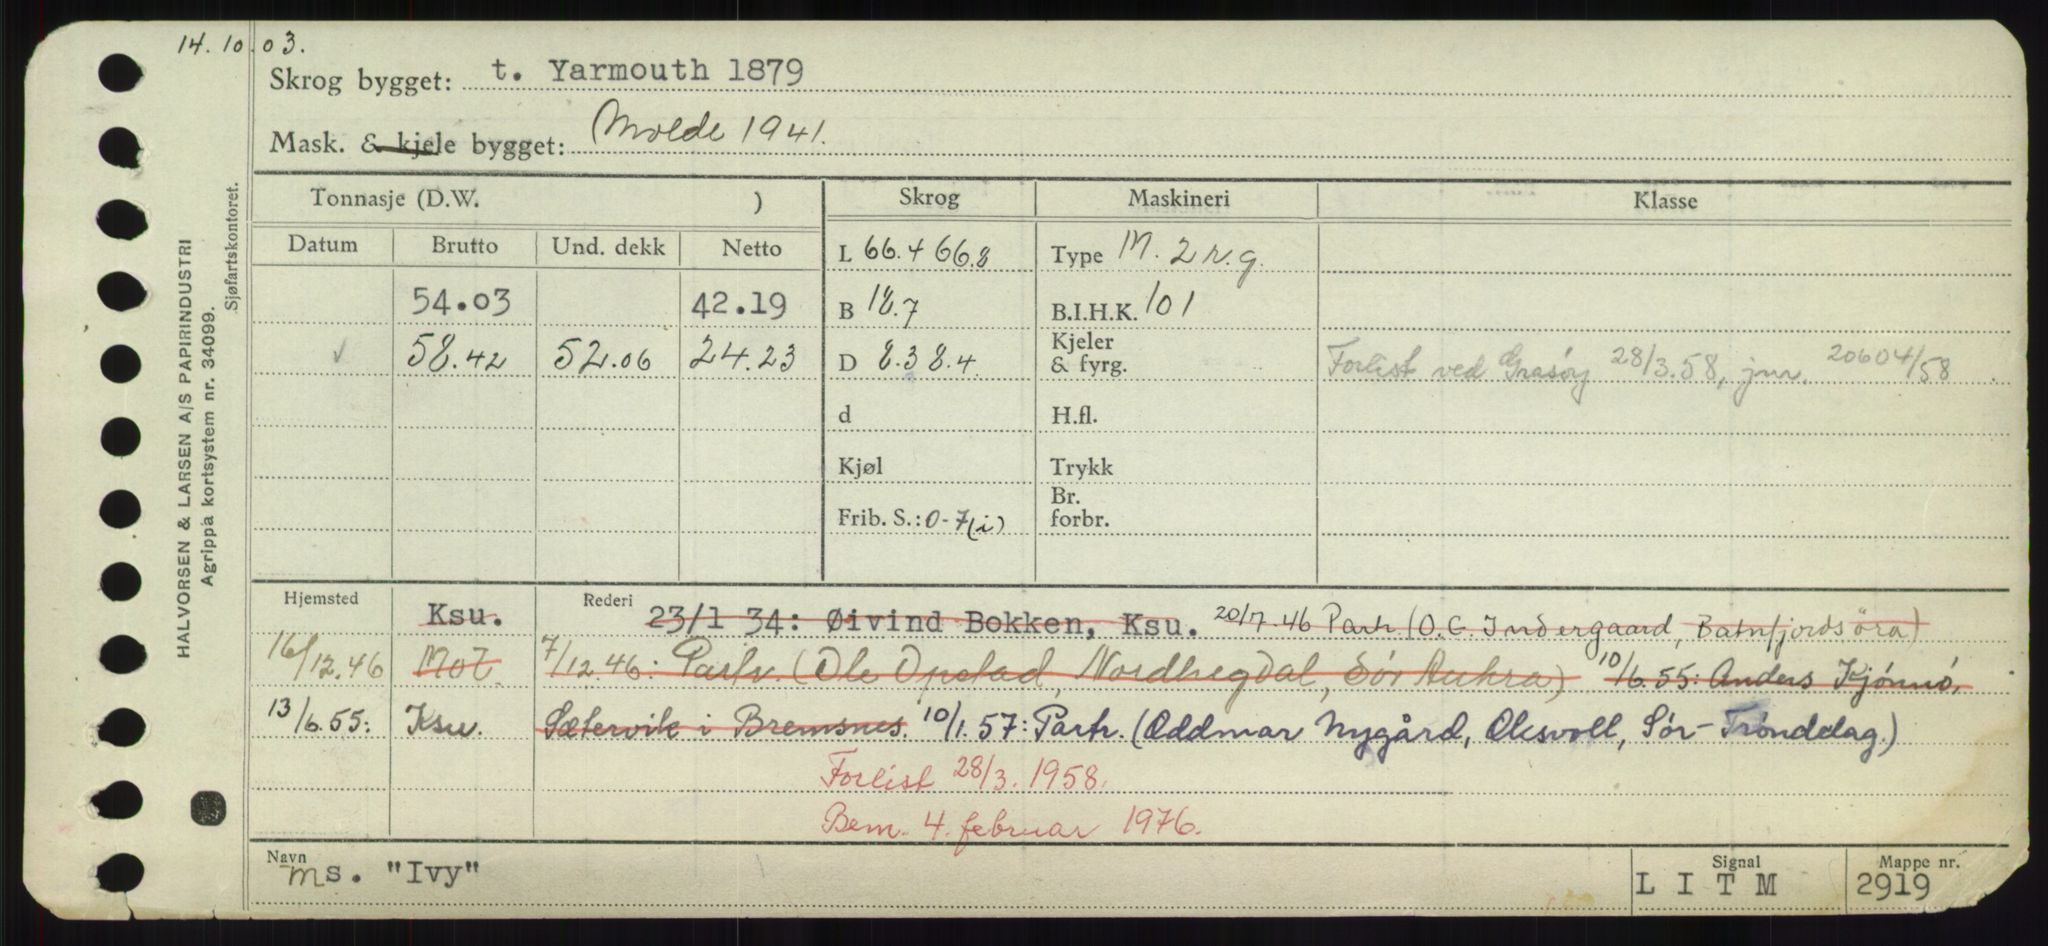 14.10.03.
Skrog bygget: t. Yarmouth 1879
Mask. & kjele bygget: Molde 1941.
HALVORSEN & LARSEN A/S PAPIRINDUSTRI
Agrippa kortsystem nr. 34099.
Sjøfartskontoret.
Tonnasje (D.W. ) Skrog Maskineri Klasse
Datum Brutto Und. dekk Netto L 66.4 66.8 Type M. 2 r.g.
54.03 42.19 B 18.7 B.I.H.K. 101
✓ 58.42 52.06 24.23 D 8.3 8.4 Kjeler & fyrg. Forlist ved Grasøy 28/3.58, jnr. 20604/58
d H.fl.
Kjøl Trykk
Frib. S.: 0-7(i) Br. forbr.
Hjemsted Ksu. Rederi 23/1 34: Øivind Bokken, Ksu. 20/7.46 Partr. (O.C. Indergaard, Batnfjordsøra)
16/12.46 Mol. 7/12 46: Partr. (Ole Opstad, Nordhegdal, Sør Aukra) 10/6.55: Anders Kjønnø,
13/6.55: Ksu. Sætervik i Bremsnes. 10/1.57: Partr. (Oddmar Nygård, Olesvoll, Sør-Trønddag.)
Forlist 28/3. 1958.
Bem. 4. februar 1976.
Navn ms. "Ivy" Signal LITM Mappe nr. 2919